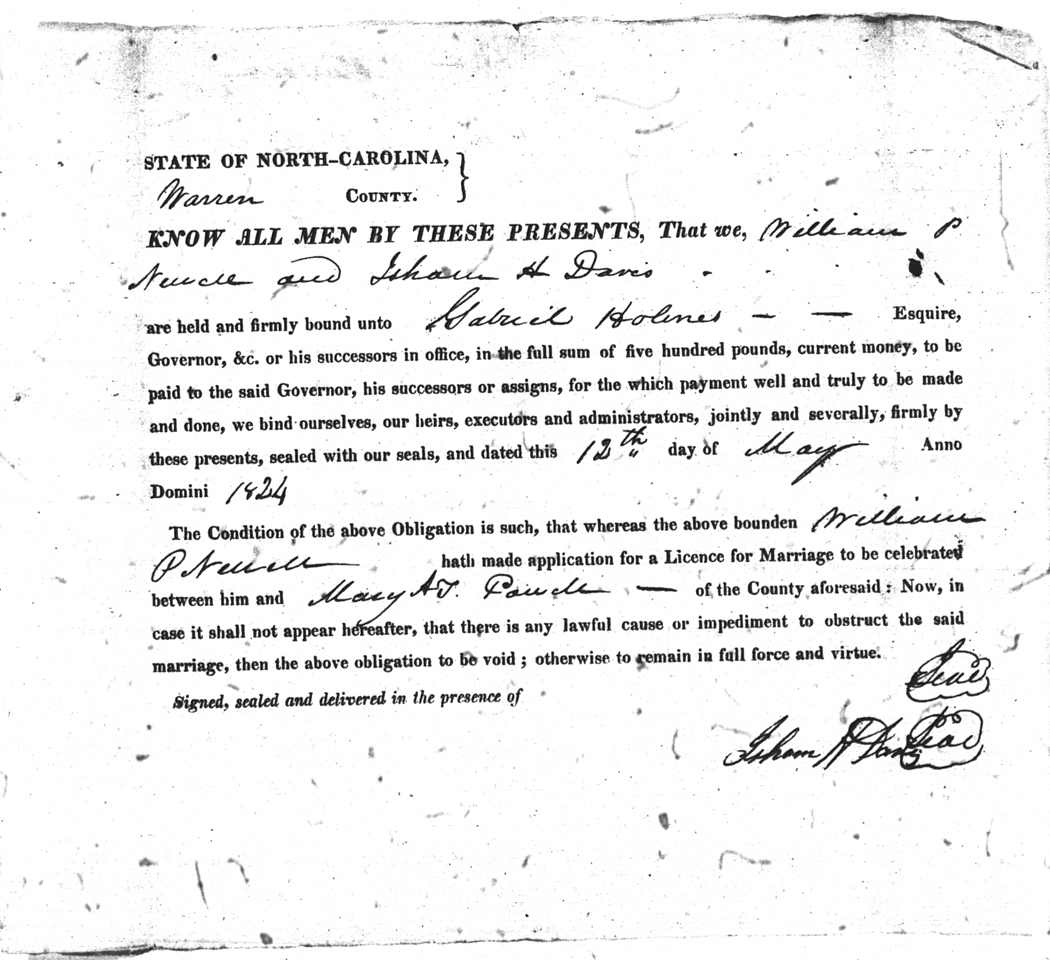 STATE OF NORTH-CAROLINA, }
Warren COUNTY.
KNOW ALL MEN BY THESE PRESENTS, That we, William P
Newell and Isham H Davis
are held and firmly bound unto Gabriel Holmes — — Esquire,
Governor, &c. or his successors in office, in the full sum of five hundred pounds, current money, to be
paid to the said Governor, his successors or assigns, for the which payment well and truly to be made
and done, we bind ourselves, our heirs, executors and administrators, jointly and severally, firmly by
these presents, sealed with our seals, and dated this 12th day of May Anno
Domini 1824
The Condition of the above Obligation is such, that whereas the above bounden William
P Newell hath made application for a Licence for Marriage to be celebrated
between him and Mary A T. Powell — of the County aforesaid: Now, in
case it shall not appear hereafter, that there is any lawful cause or impediment to obstruct the said
marriage, then the above obligation to be void; otherwise to remain in full force and virtue.
Seal
Signed, sealed and delivered in the presence of
Isham H Davis Seal